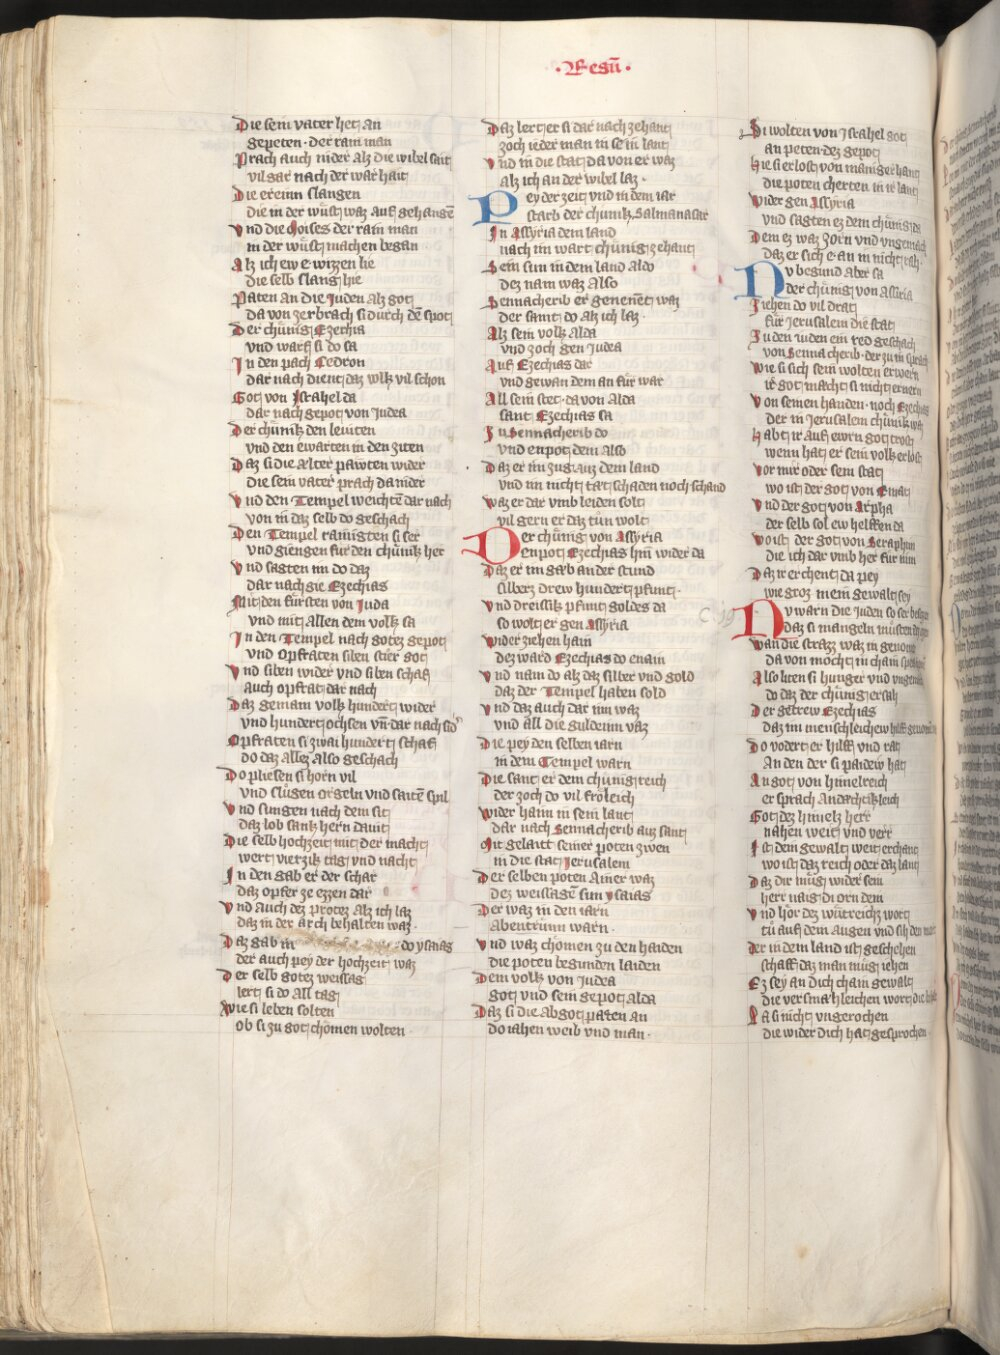 · Regū ·
Die sein vater het an
gepeten · der rain man
Prach auch nider Alz die wibel sait
vil gar nach der warhait
Die ereinn slangen
die in der wüst waz auf gehangē
Vnd die Moises der rain man
in der wüst machen began
Alz ich ew e wizzen lie
die selb slang hie
Paten an die Juden Alz got
da von zerbrach si durch dē spot
Der chünig Ezechia
vnd warf si do sa
In den pach Cedron
dar nach dient daz volk vil schon
Got von Israhel da
dar nach gepot von Judea
Der chünik den leuiten
vnd den ewarten in den ziten
Daz si die alter pawten wider
die sein vater prach da nider
Vnd den Tempel weichtē dar nach
von in daz selb do geschach
Den Tempel rainigten si ser
vnd giengen für den chünik her
Vnd sagten im do daz
dar nach gie Ezechias
Mit den fürsten von Juda
vnd mit allen dem volk sa
In den Tempel nach gotez gepot
vnd opfraten siben stier got
Vnd siben wider vnd siben schaf
auch opfrat dar nach
Daz gemain volk hundert wider
vnd hundert ochsen vn̄ dar nach sid
Opfraten si zwai hundert schaf
do daz allez also geschach
Do pliesen si horn vil
vnd slügen orgeln vnd saitē spil
Vnd sungen nach dem sit
daz lob sank hern dauit
Die selb hochzeit mit der macht
wert vierzik tag vnd nacht
In den gab er der schar
daz opfer ze ezzen dar
Vnd auch dez protez Alz ich laz
daz in der arch behalten waz ·
Daz gab in do ysaias
der auch pey der hochzeit waz
Der selb gotez weissag
lert si do all tag
Wie si leben solten
ob si zu got chomen wolten ·
Daz lert er si dar nach zehant
zoch ieder man in sein lant
Vnd in die stat da von er waz
alz ich an der wibel laz ·
Pey der zeit vnd in dem iar
starb der chünik Salmanasar
In Assyria dem land
nach im wart chünig zehant
Sein sun in dem land aldo
dez nam waz also
Sennacherib er genennet waz
der sant do alz ich laz ·
Alz sein volk alda
vnd zoch gen Judea
Auf Ezechias dar
vnd gewan dem an für war
All sein stet · da von alda
sant Ezechias sa
Zu Sennacherib do
vnd enpot dem also
Daz er im zug auz dem land
vnd im nicht tat schaden noch schand
Waz er dar vmb leiden solt
vil gern er daz tün wolt
Der chünig von Assyria
enpot Ezechias hin wider da
Daz er im gab an der stund
silberz drew hundert pfunt ·
Vnd dreissik pfunt goldes da
so wolt er gen Assyria
Wider ziehen hain
dez ward Ezechias do enain
Vnd nam do alz daz silber vnd gold
daz der Tempel haben sold
Vnd daz auch dar inn waz
vnd all die guldeinn vaz
Die pey den selben iarn
in dem Tempel warn
Die sant er dem chünig reich
der zoch do vil fröleich
Wider haim in sein lant
dar nach Sennacherib auz sant
Mit gelait seiner poten zwen
in die stat Jerusalem
Der selben poten Ainer waz
dez weissagē sun ysaias
Der waz in den iarn
Abentrünn warn ·
Vnd waz chomen zu den haiden
die poten begunden laiden
Dem volk von Judea
got vnd sein gepot alda
Daz si die abgot paten an
do iahen weib vnd man ·
Si wolten von Israhel got
an peten · dez gepot
Hie si erlost von maniger hant
die poten cherten in ir lant
Wider gen Assyria
vnd sagten ez dem chünig da
Dem ez waz zorn vnd vngemach
daz er sich e an in nicht rach ·
Nv begund aber sa
der chünig von Assiria
Ziehen do vil drat
für Jerusalem die stat
Zu den iuden ein red geschach
von Sennacherib · der zu in sprach
Wie si sich sein wolten erwern
ir got macht si nicht ernern
Von seinen handen · noch Ezechias
der in Jerusalem chünik waz
Habt ir auf ewrn got trost
wenn hat er sein volk erlost
Vor mir oder sein stat
wo ist der got von Emat
Vnd der got von Arpha
der selb sol ew helffen da
Wo ist der got von Seraphim
die ich dar vmb her für nim
Daz ir erchent da pey
wie groz mein gewalt sey
Nv warn die Juden so ser besezzen
Daz si mangeln müsten
Wan die strazz waz in genomen
da von mocht in chain
Also liten si hunger vnd vngemach
do daz der chünig ersah
Der getrew Ezechias
daz im menschleichew hilff genomen
Do vodert er hilff vnd rat
An den der si paidew hat
An got von himelreich
er sprach Andachtikleich
Got dez himelz herr
nahen weit vnd verr
Ist dein gewalt weit erchant
wo ist daz reich oder daz lant
Daz dir müg wider sein
herr naig di orn dein
Vnd hör dez wütreichz wort
tü auf dein augen vnd sih den mort
Der in dem land ist geschehen
schaff daz man müg iehen
Ez sey an dich chain gewalt
die versmahleichen wort
La si nicht vngerochen
die wider dich hat gesprochen ·